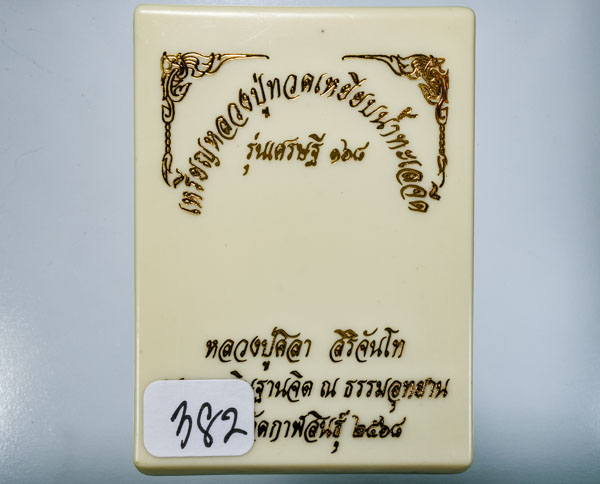 เหรียญหลวงปู่ทวดเหยียบน้ำทะเลจืด
รุ่นเศรษฐี ๑๖๘
หลวงปู่ศิลา สิริจันโท
ฐานจิต ณ ธรรมอุทยาน
กาฬสินธุ์ ๒๕๖๘
382